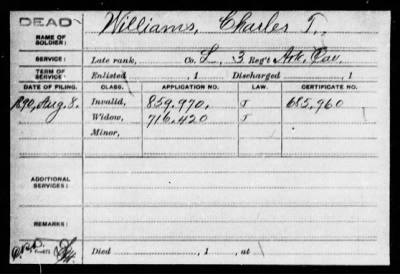 DEAD
NAME OF SOLDIER: Williams, Charles T.
SERVICE: Late rank, Co. L, 3 Reg't Ark. Cav.
TERM OF SERVICE: Enlisted , 1 Discharged , 1
DATE OF FILING. CLASS. APPLICATION NO. LAW. CERTIFICATE NO.
1890, Aug. 8. Invalid, 859,970, J 685,960
Widow, 716,420 J
Minor,
ADDITIONAL SERVICES:
REMARKS:
Died , 1 , at